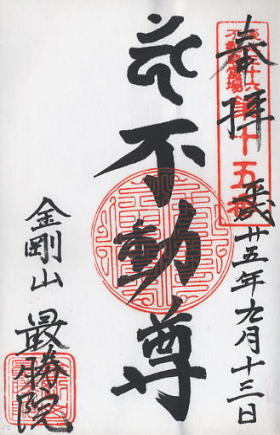 奉拝
第十五番
平成廿五年九月十三日
不動尊
金剛山 最勝院